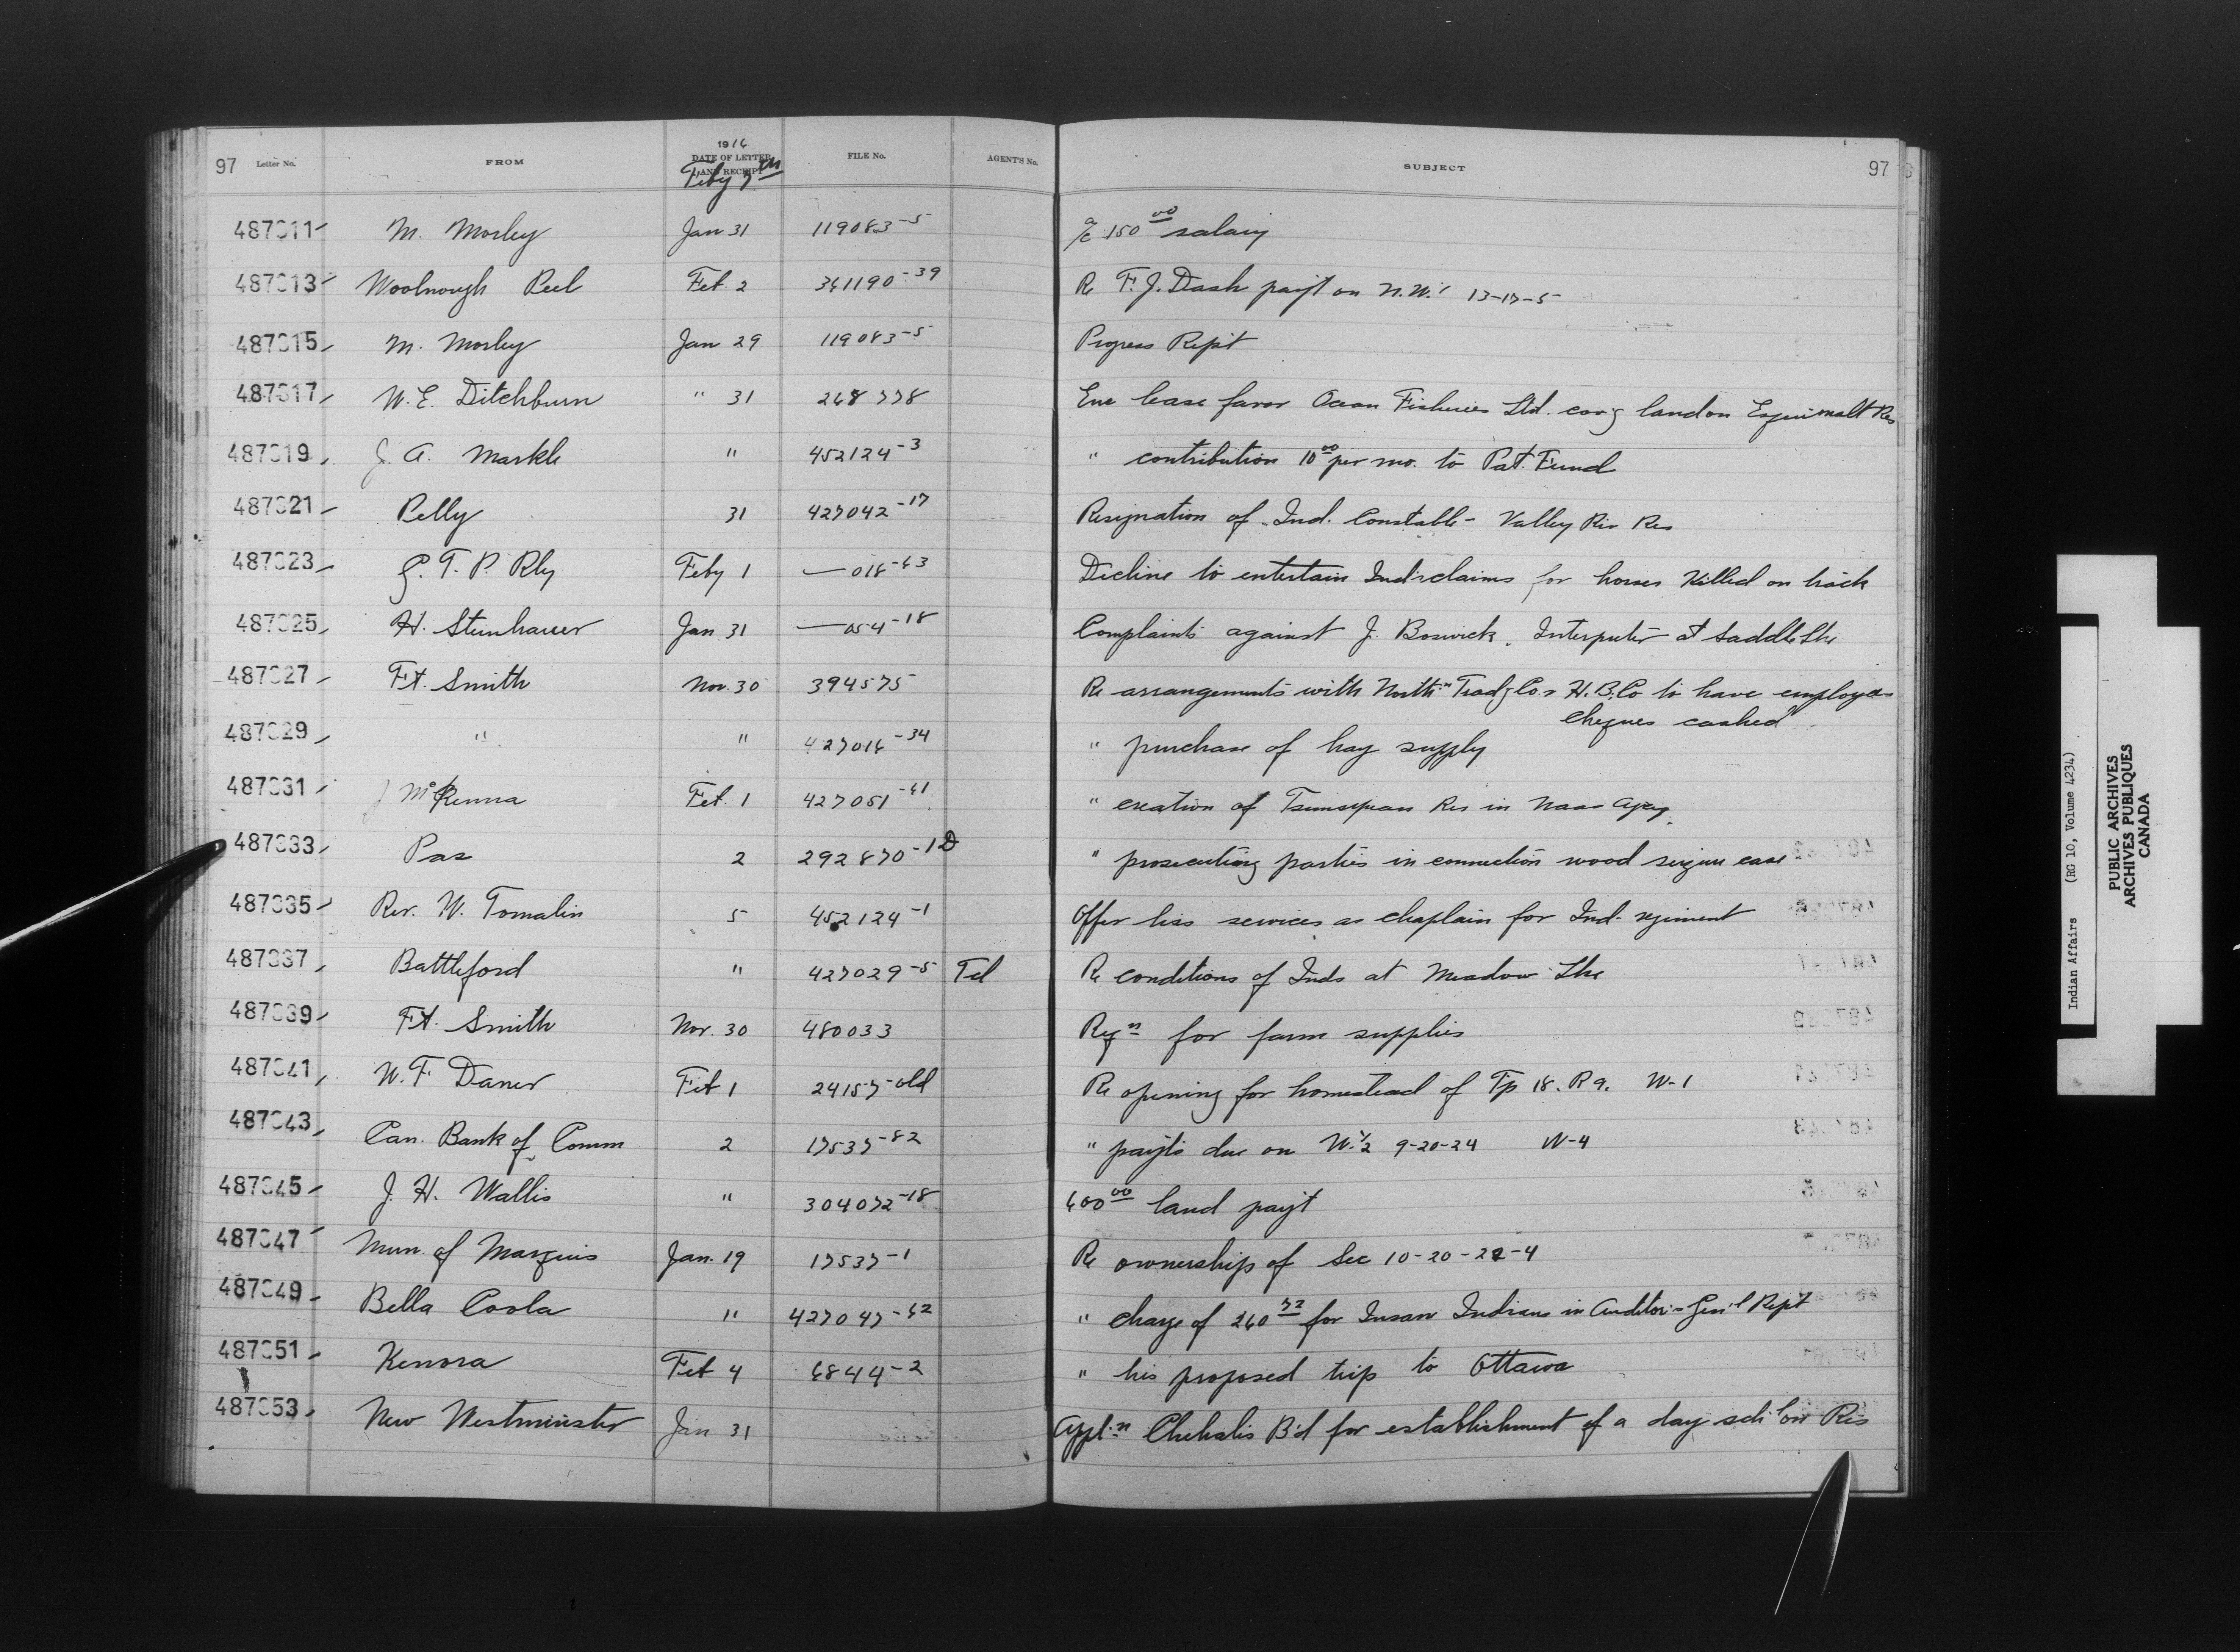 97 Letter No. FROM 1916 DATE OF LETTER AND RECEIPT FILE No. AGENT'S No. SUBJECT 97
Feby 7th
487011 M. Morley Jan 31 119083-5 a/c 150 00 salary
487013 Woolnough Peel Feb. 2 361190-39 Re F. J. Dash payt on N.W. 13-17-5
487015 M. Morley Jan 29 119083-5 Progress Rep't
487017 W. E. Ditchburn " 31 268778 Enc lease favor Ocean Fisheries Ltd. cov'g land on Esquimalt Res
487019 J. A. Markle " 452124-3 " contribution 10 00 per mo. to Pat. Fund
487021 Pelly 31 427042-17 Resignation of Ind. Constable - Valley Riv Res
487023 G. T. P. Rly Feby 1 — 016-63 Decline to entertain Inds claims for horses killed on track
487025 H. Steinhauer Jan 31 — 054-18 Complaints against J. Boswick. Interputer at Saddle Lke
487027 Ft. Smith Nov. 30 394575 Re arrangements with North'n Trad'g Co & H. B. Co to have employees
cheques cashed
487029 " " 427016-34 " purchase of hay supply
487031 J McKenna Feb. 1 427051-61 " creation of Tsimsepean Res in Naas Agcy.
487033 Pas 2 292870-1D " prosecuting parties in connection wood seizure case
487035 Rev. W. Tomalin 5 452124-1 Offer his services as chaplain for Ind. regiment
487037 Battleford " 427029-5 Tel Re conditions of Inds at Meadow Lke
487039 Ft. Smith Nov. 30 480033 Reqn for farm supplies
487041 W. F. Daner Feb 1 24157-old Re opening for homestead of Tp 18. R 9. W-1
487043 Can. Bank of Comm 2 17537-82 " payts due on W. 1/2 9-20-24 W-4
487045 J. H. Wallis " 304072-18 600 00 land payt
487047 Mun. of Marquis Jan. 19 17537-1 Re ownership of Sec 10-20-22-4
487049 Bella Coola " 427047-62 " charge of 260 72 for Insane Indians in Auditor-Gen'l Rept
487051 Kenora Feb 4 6844-2 " his proposed trip to Ottawa
487053 New Westminster Jan 31 Appl'n Chehalis B'd for establishment of a day sch' on Res
Indian Affairs (RG 10, Volume 4234)
PUBLIC ARCHIVES
ARCHIVES PUBLIQUES
CANADA